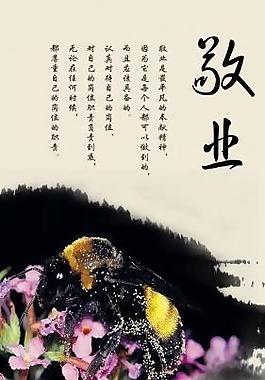 敬业
敬业是最平凡的奉献精神，
因为它是每个人都可以做到的，
而且应该具备的。
认真对待自己的岗位，
对自己的岗位职责负责到底，
无论在任何时候，
都尊重自己的岗位的职责。